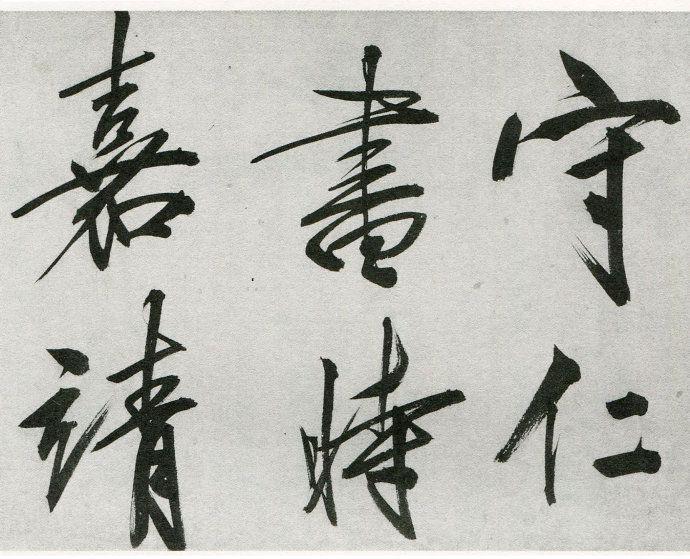 守仁
書時
嘉靖